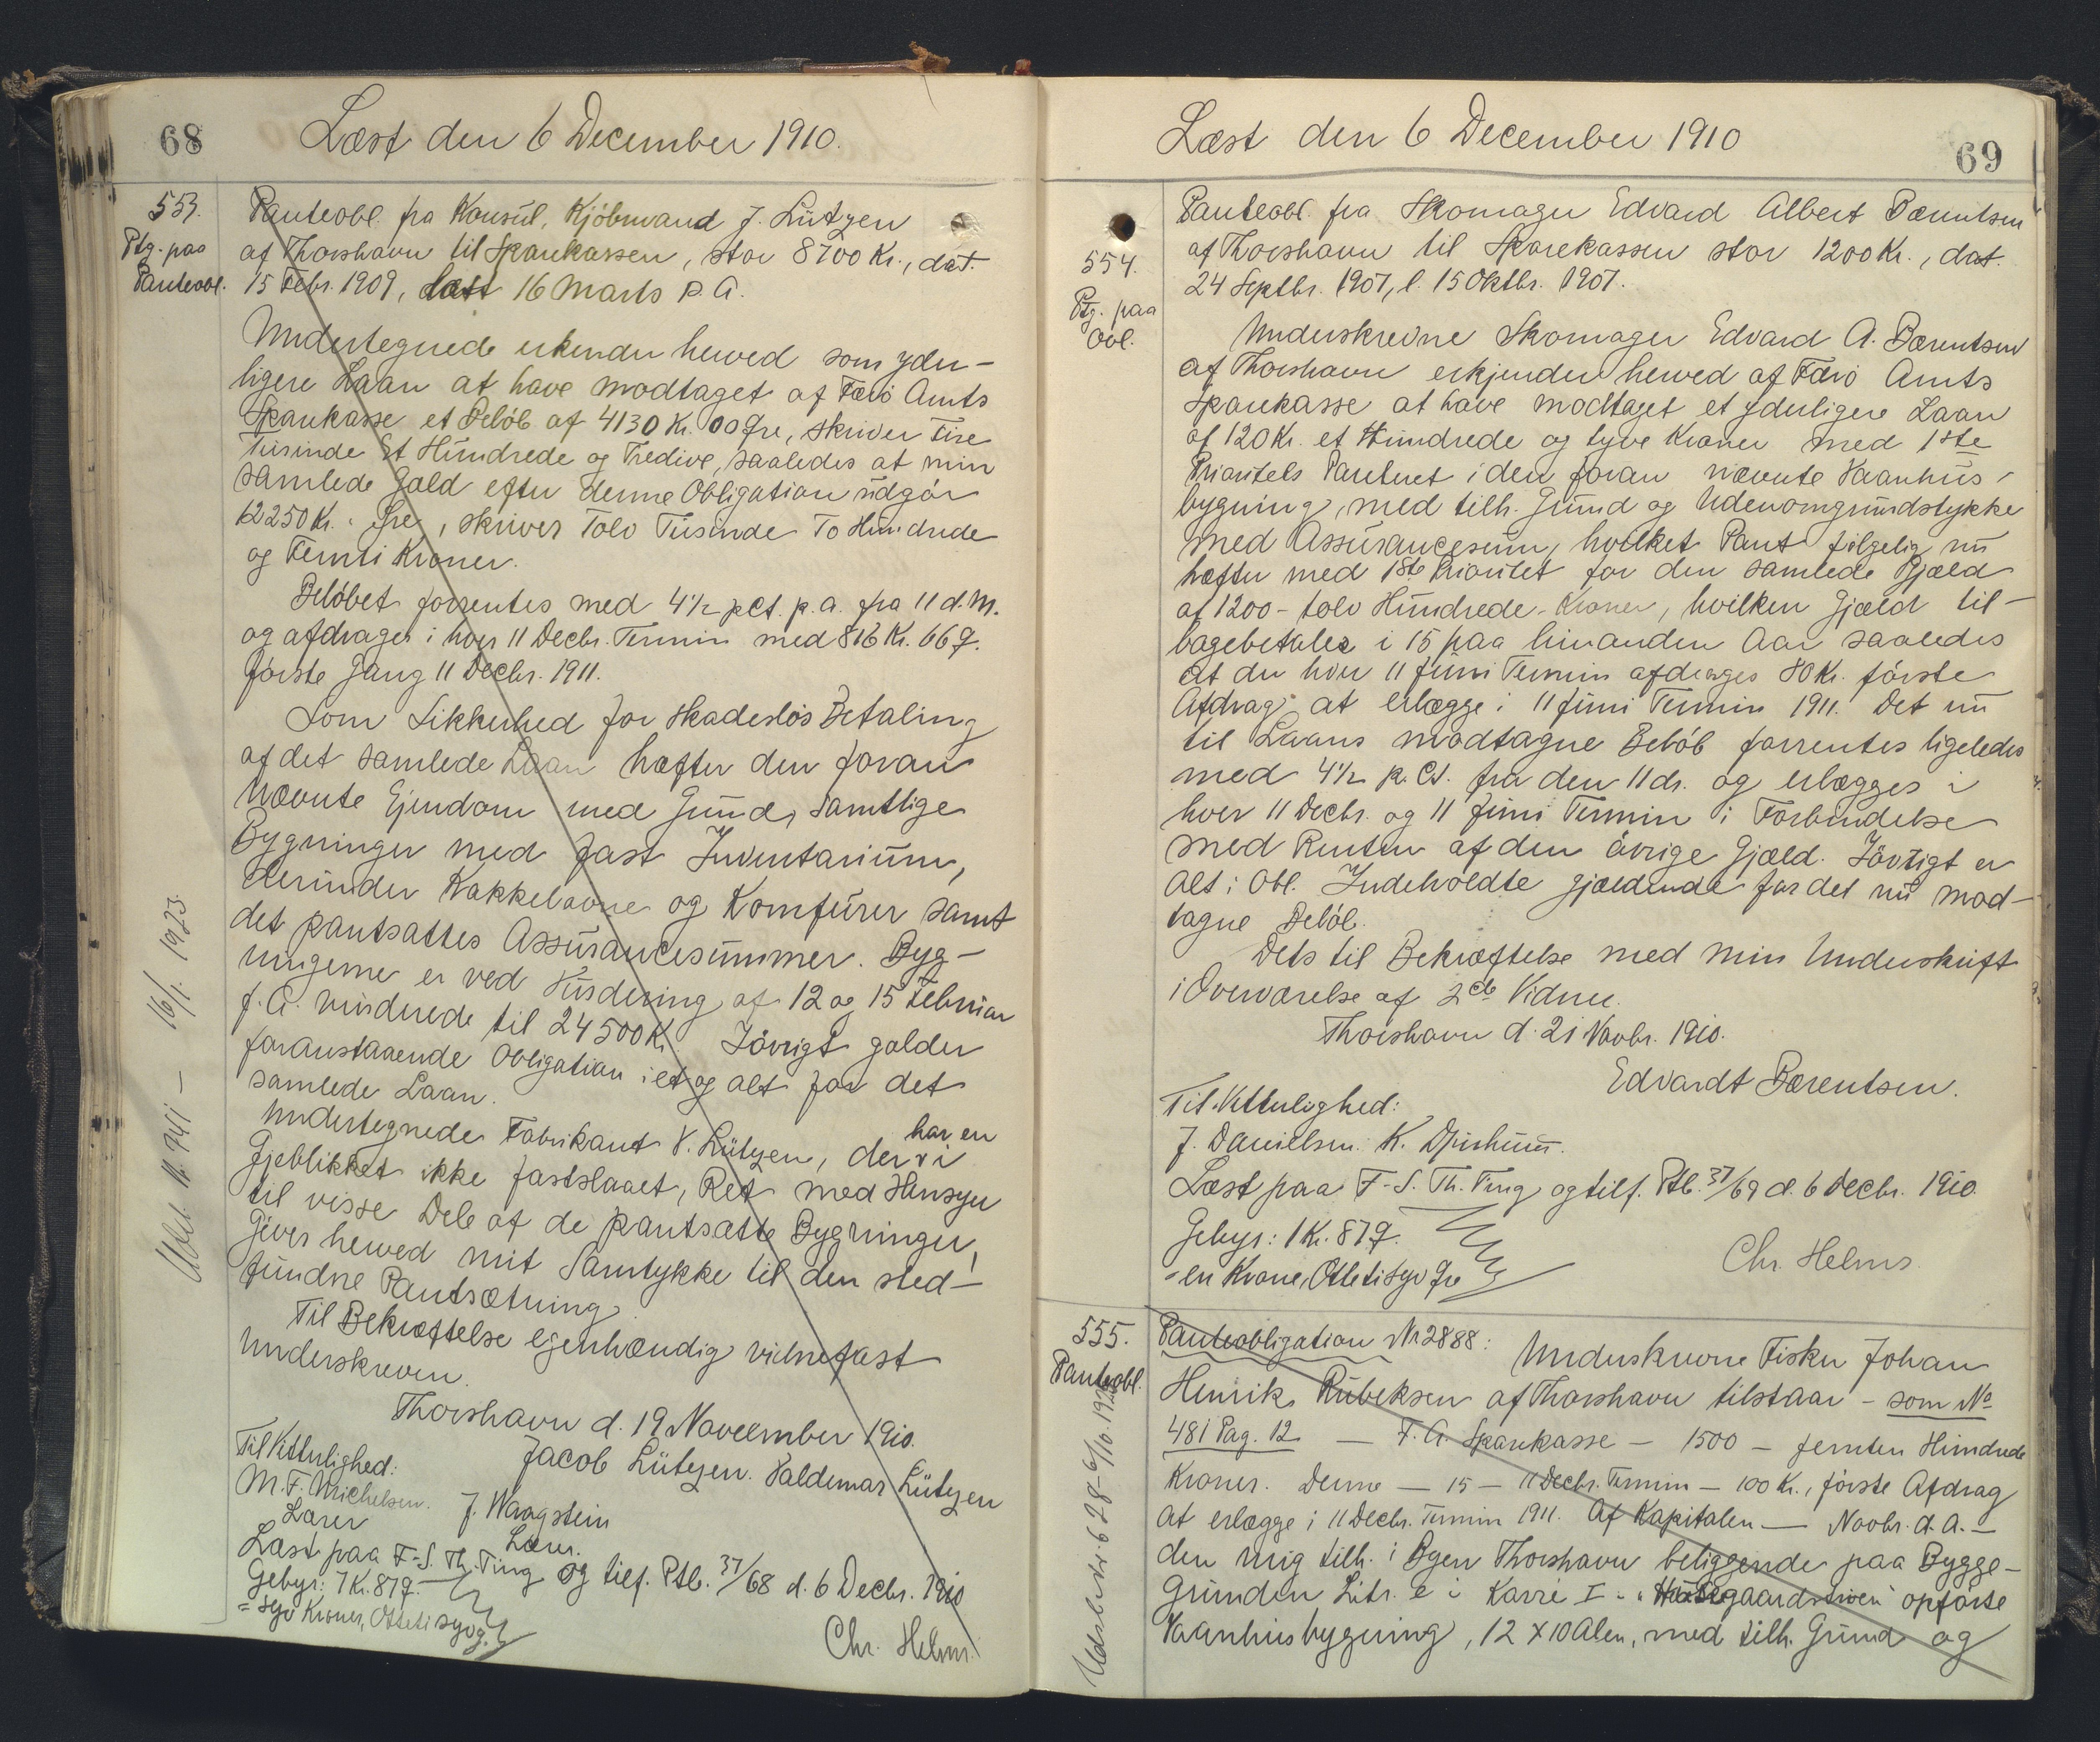 68
Læst den 6 December 1910.
553.
Ptg. paa
Panteobl.
Panteobl. fra Konsul, Kjöbmand J. Lützen
af Thorshavn til Sparekassen, stor 8700 Kr., dat.
15 Febr. 1909, læst 16 Marts p. A.
Undertegnede erkender herved som yder-
ligere Laan at have modtaget af Færö Amts
Sparekasse et Belöb af 4130 Kr. 00 Øre, skriver Fire
Tusinde Et Hundrede og Tredive, saaledes at min
samlede Gæld efter denne Obligation udgör
12250 Kr. " Øre, skriver Tolv Tusinde To Hundrede
og Femti Kroner.
Belöbet forrentes med 4½ pCt. p.a. fra 11 d. M.
og afdrages i hver 11 Decbr. Termin med 816 Kr. 66 Ø.
förste Gang 11 Decbr. 1911.
Som Sikkerhed for skadeslös Betaling
af det samlede Laan hæfter den foran
nævnte Ejendom med Grund, samtlige
Bygninger med fast Inventarium,
derunder Kakkelovne og Komfurer samt
det pantsattes Assurancesummer. Byg-
ningerne er ved Vurdering af 12 og 15 Februar
f. A. vurderede til 24500 Kr. Iövrigt gælder
foranstaaende Obligation i et og alt for det
samlede Laan.
Undertegnede Fabrikant V. Lützen, der har en i
Øjeblikket ikke fastslaaet, Ret med Hensyn
til visse Dele af de pantsatte Bygninger,
giver herved mit Samtykke til den sted-
fundne Pantsætning.
Til Bekræftelse egenhændig vidnefast
underskreven.
Thorshavn d. 19 November 1910.
Jacob Lützen. Valdemar Lützen
Til Vitterlighed:
M. F. Michelsen. J. Waagstein
Lærer Lærer.
Læst paa F-S. Th. Ting og tilf. Ptb. 37/68 d. 6 Decbr. 1910
Gebyr: 7 Kr. 87 Ø.
= syv Kroner, Ottetisyv Ø.
Chr. Helms.
Udsl. 11. 741 — 16/1. 1923
69
Læst den 6 December 1910
554.
Ptg. paa
Obl.
Panteobl. fra Skomager Edvard Albert Bærentsen
af Thorshavn til Sparekassen stor 1200 Kr., dat.
24 Septbr. 1907, l. 15 Oktbr. 1907.
Underskrevne Skomager Edvard A. Bærentsen
af Thorshavn erkjender herved af Færö Amts
Sparekasse at have modtaget et yderligere Laan
af 120 Kr. et Hundrede og tyve Kroner med 1ste
Prioritets Panteret i den foran nævnte Vaanhus-
bygning, med tilh. Grund og Udenomgrundstykke
med Assurancesum, hvilket Pant fölgelig nu
hæfter med 1ste Prioritet for den samlede Gjæld
af 1200 - tolv Hundrede - Kroner, hvilken Gjæld til-
bagebetales i 15 paa hinanden Aar saaledes
at der hver 11 Juni Termin afdrages 80 Kr. förste
Afdrag at erlægge i 11 Juni Termin 1911. Det nu
til Laans modtagne Belöb forrentes ligeledes
med 4½ p. Ct. fra den 11 ds. og erlægges i
hver 11 Decbr. og 11 Juni Termin i Forbindelse
med Renten af den övrige Gjæld. Iövrigt er
alt i Obl. Indeholdte gjældende for det nu mod-
tagne Belöb.
Dets til Bekræftelse med min Underskrift
i Overværelse af 2de Vidner.
Thorshavn d. 21 Novbr. 1910.
Edvardt Bærentsen.
Til Vitterlighed:
J. Danielsen. K. Djurhuus.
Læst paa F-S. Th. Ting og tilf. Ptb. 37/69 d. 6 Decbr. 1910.
Gebyr: 1 Kr. 87 Ø.
= en Krone, Ottetisyv Øre
Chr. Helms.
555.
Panteobl.
Panteobligation No 2888: Underskrevne Fisker Johan
Henrik Rubeksen af Thorshavn tilstaar - som No
481 Pag. 12 — F. A. Sparekasse — 1500 — femten Hundrede
Kroner. Denne — 15 — 11 Decbr. Termin — 100 Kr., förste Afdrag
at erlægge i 11 Decbr. Termin 1911. Af Kapitalen — Novbr. d. A. —
den mig tilh. i Byen Thorshavn beliggende paa Bygge-
Grunden Litr. e i Karré I - opförte
Vaanhusbygning, 12 x 10 Alen, med tilh. Grund og